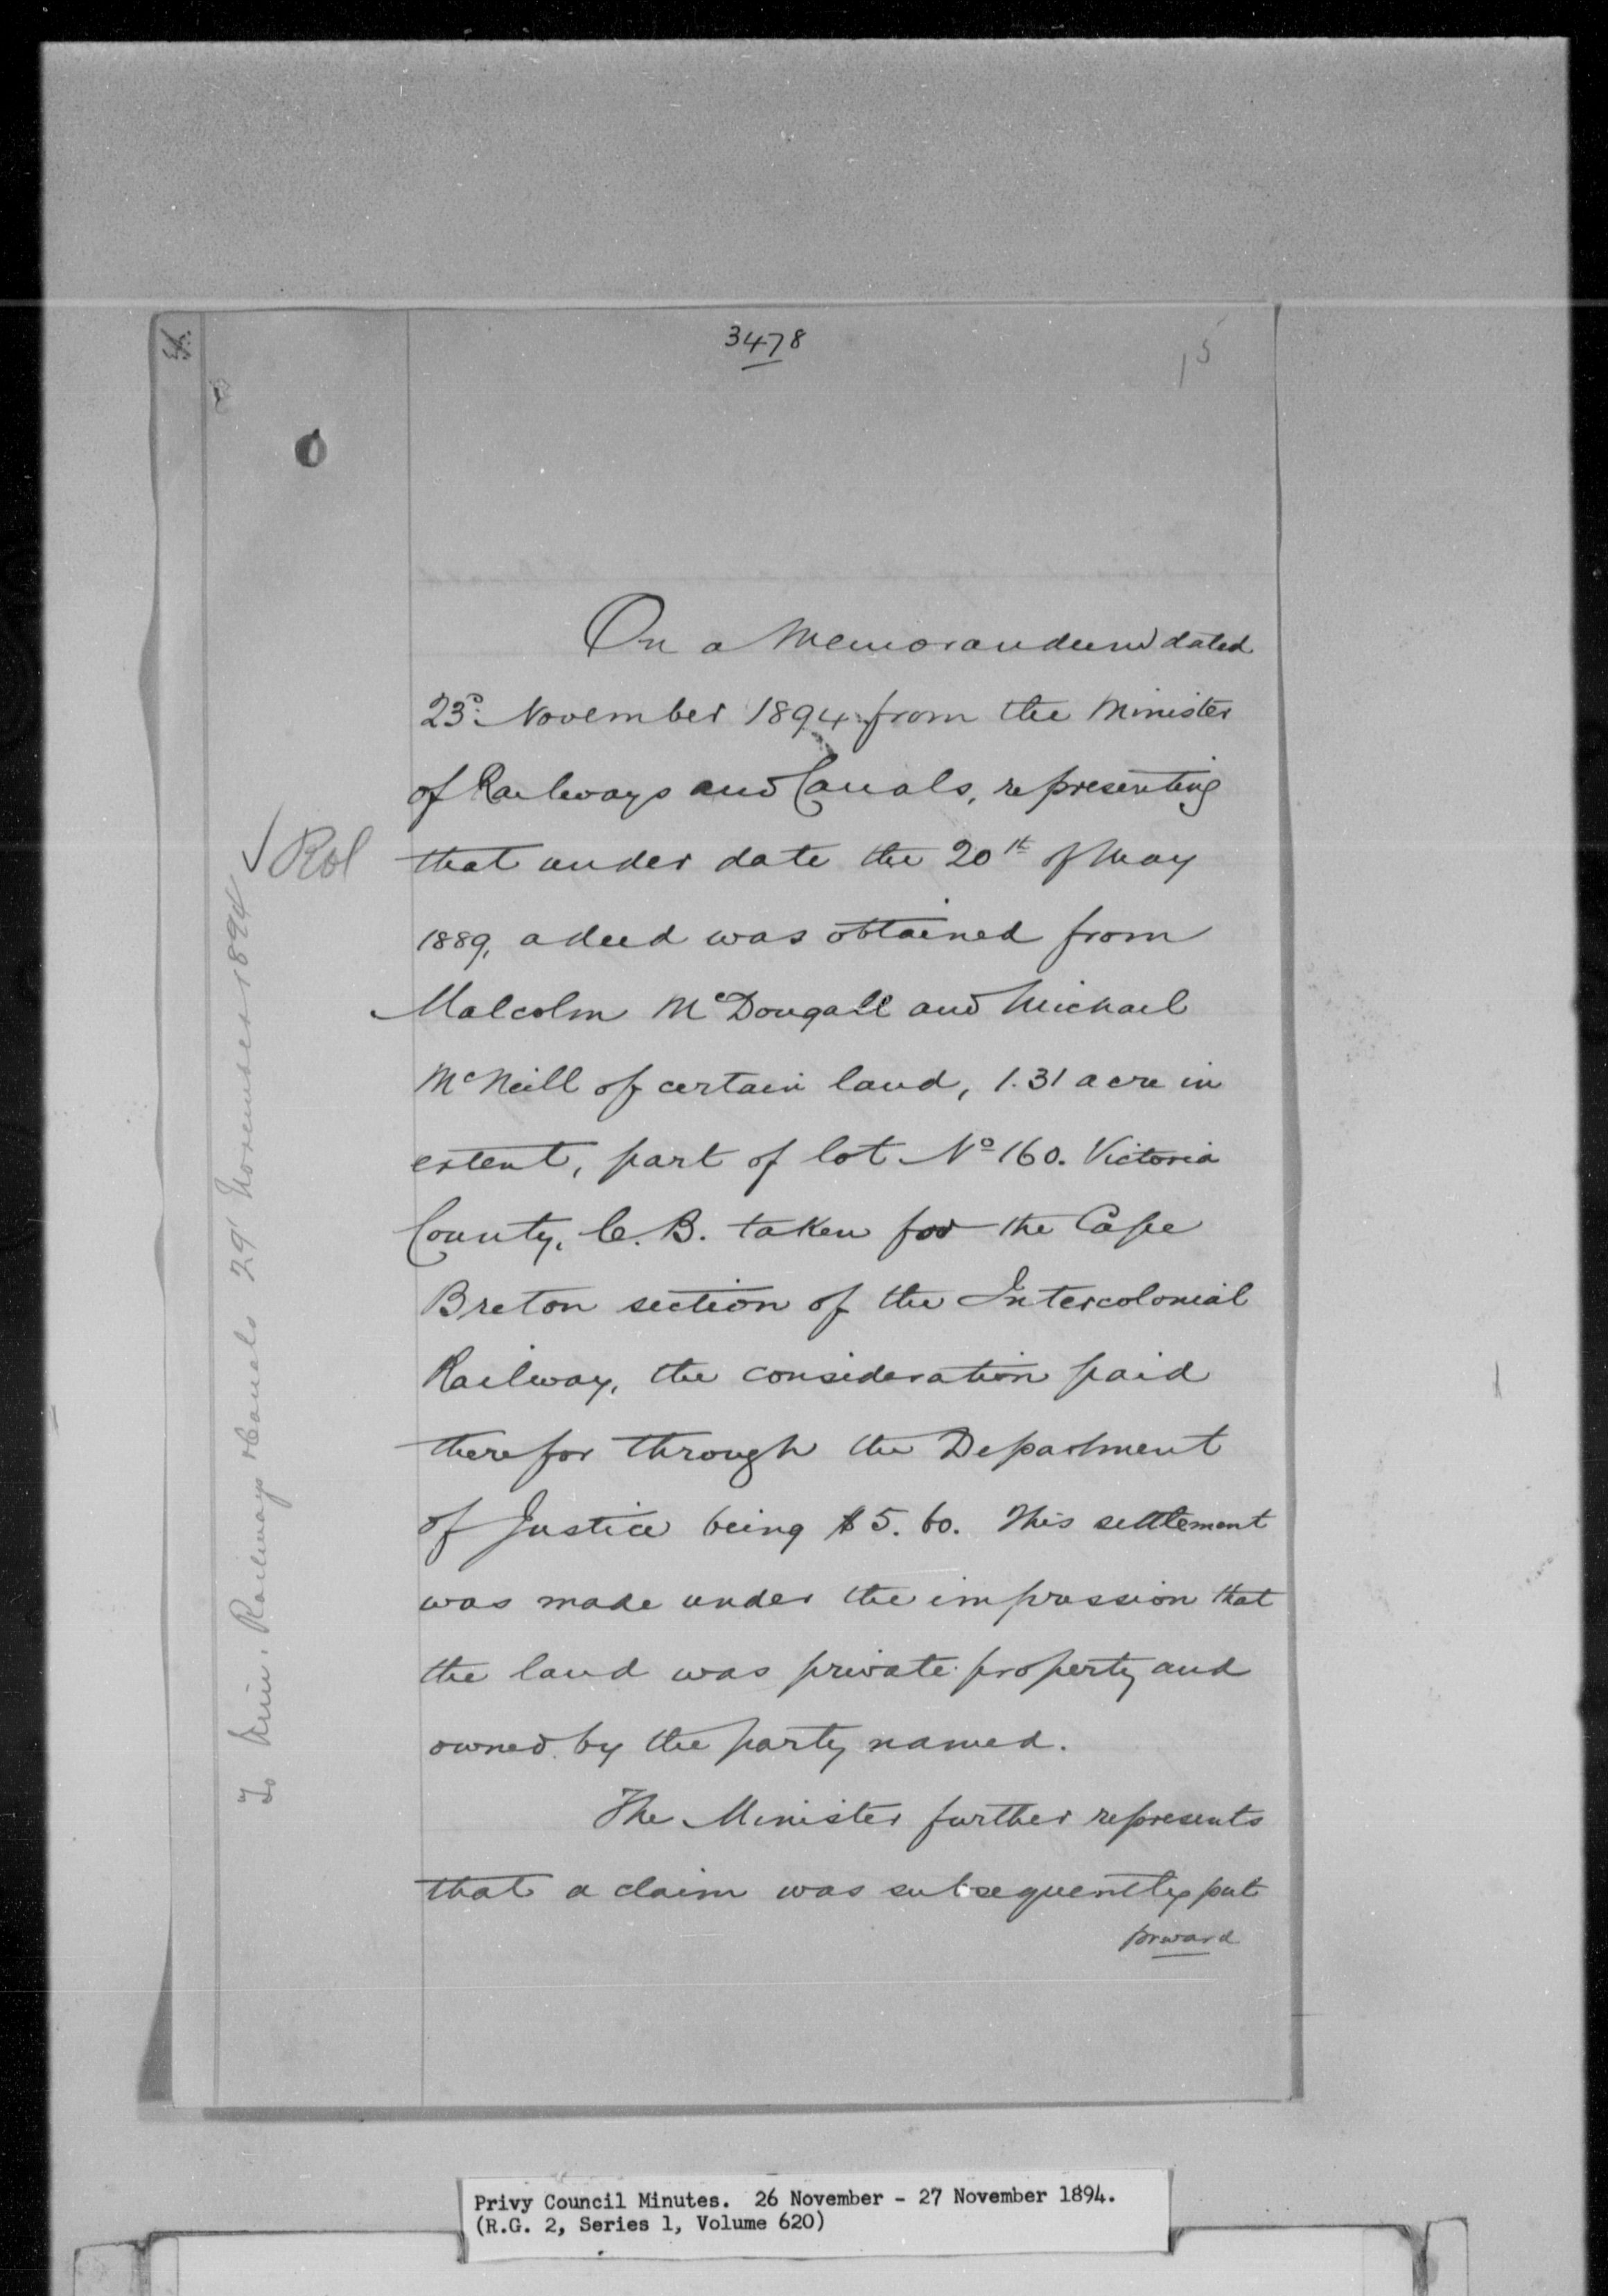 3478
15
On a Memorandum dated
23d November 1894 from the Minister
of Railways and Canals, representing
that under date the 20th of May
1889, a deed was obtained from
Malcolm McDougall and Michael
McNeill of certain land, 1.31 acre in
extent, part of lot No 160. Victoria
County, C.B. taken for the Cape
Breton section of the Intercolonial
Railway, the consideration paid
therefor through the Department
of Justice being $5.60. This settlement
was made under the impression that
the land was private property and
owned by the party named.
The Minister further represents
that a claim was subsequently put
forward
To Min. Railways & Canals 29 November 1894
Privy Council Minutes. 26 November - 27 November 1894.
(R.G. 2, Series 1, Volume 620)